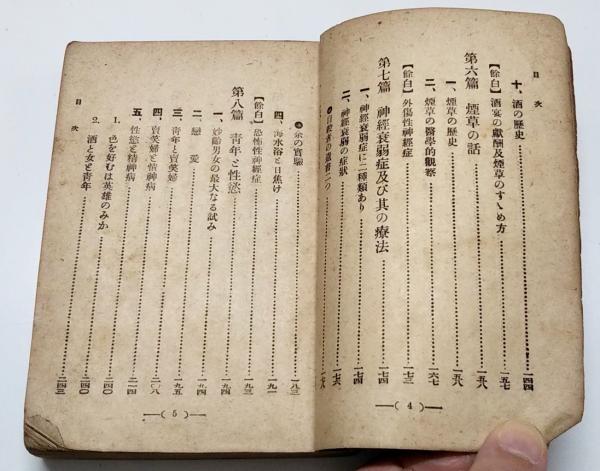 目次
十、酒の歴史……一四四
【餘白】酒宴の獻酬及煙草のすゝめ方……一五七
第六篇 煙草の話……一五八
一、煙草の歷史……一五八
二、煙草の醫學的觀察……一六七
【餘白】外傷性神經症……一七三
第七篇 神經衰弱症及び其の療法……一七四
一、神經衰弱症に二種類あり……一七四
二、神經衰弱の症狀……一七六
—( 4 )—
●余の實驗……一八三
四、海水浴と日焦け……一九一
【餘白】恐怖性神經症……一九三
第八篇 靑年と性慾……一九四
一、妙齡男女の最大なる試み……一九四
二、戀愛……一九四
三、靑年と賣笑婦……一九五
四、賣笑婦と情神病……二〇八
五、性慾と精神病……二一四
1. 色を好むは英雄のみか……二四〇
2. 酒と女と靑年……二四三
目次
—( 5 )—